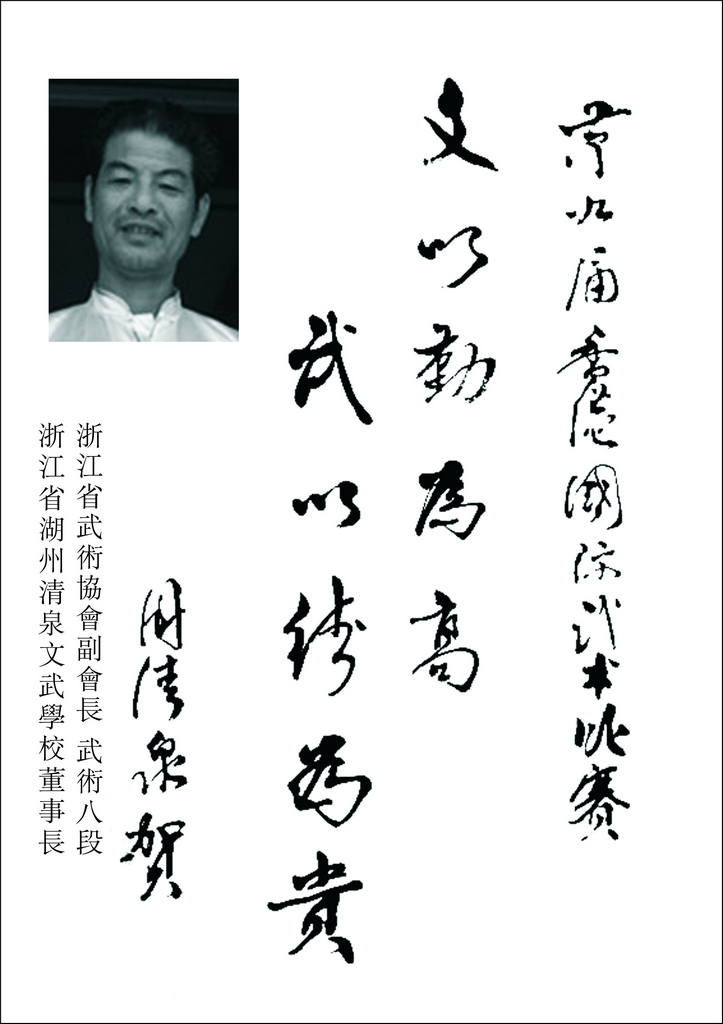 第九届香港國际武术比賽
文以勤為高
武以為貴
周清泉贺
浙江省武術協會副會長 武術八段
浙江省湖州清泉文武學校董事長